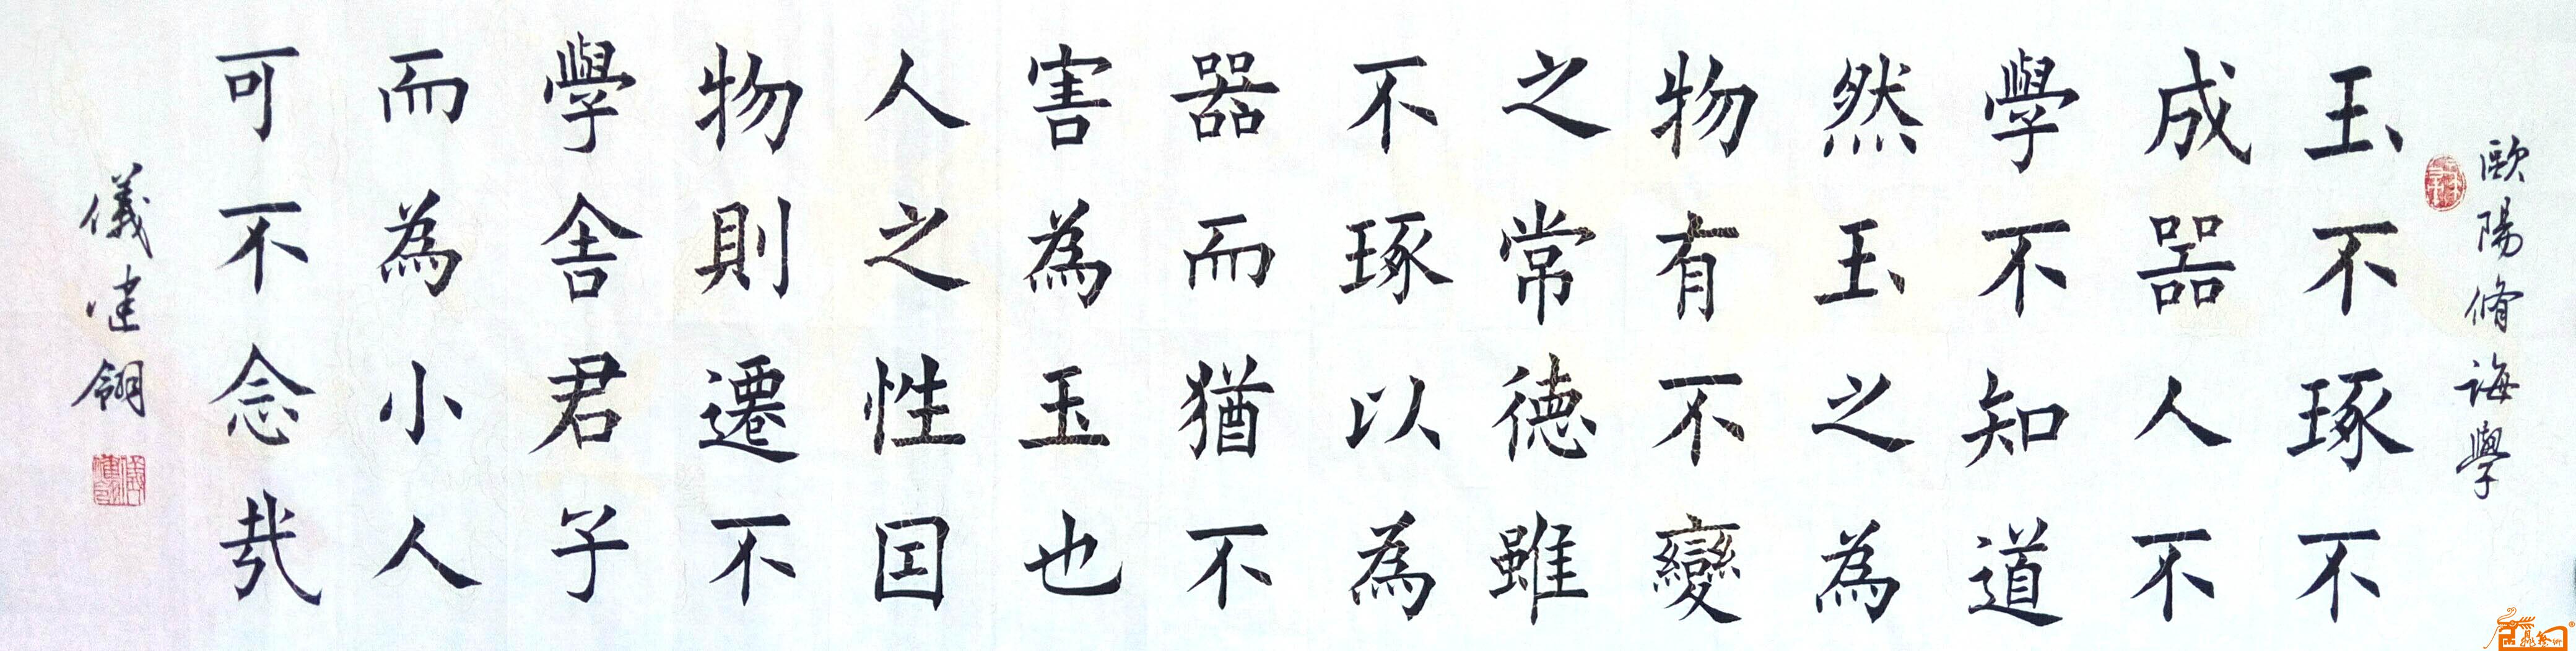 歐陽脩誨學
玉不琢不
成器人不
學不知道
然玉之為
物有不變
之常德雖
不琢以為
器而猶不
害為玉也
人之性因
物則遷不
學舍君子
而為小人
可不念哉
儀建翎